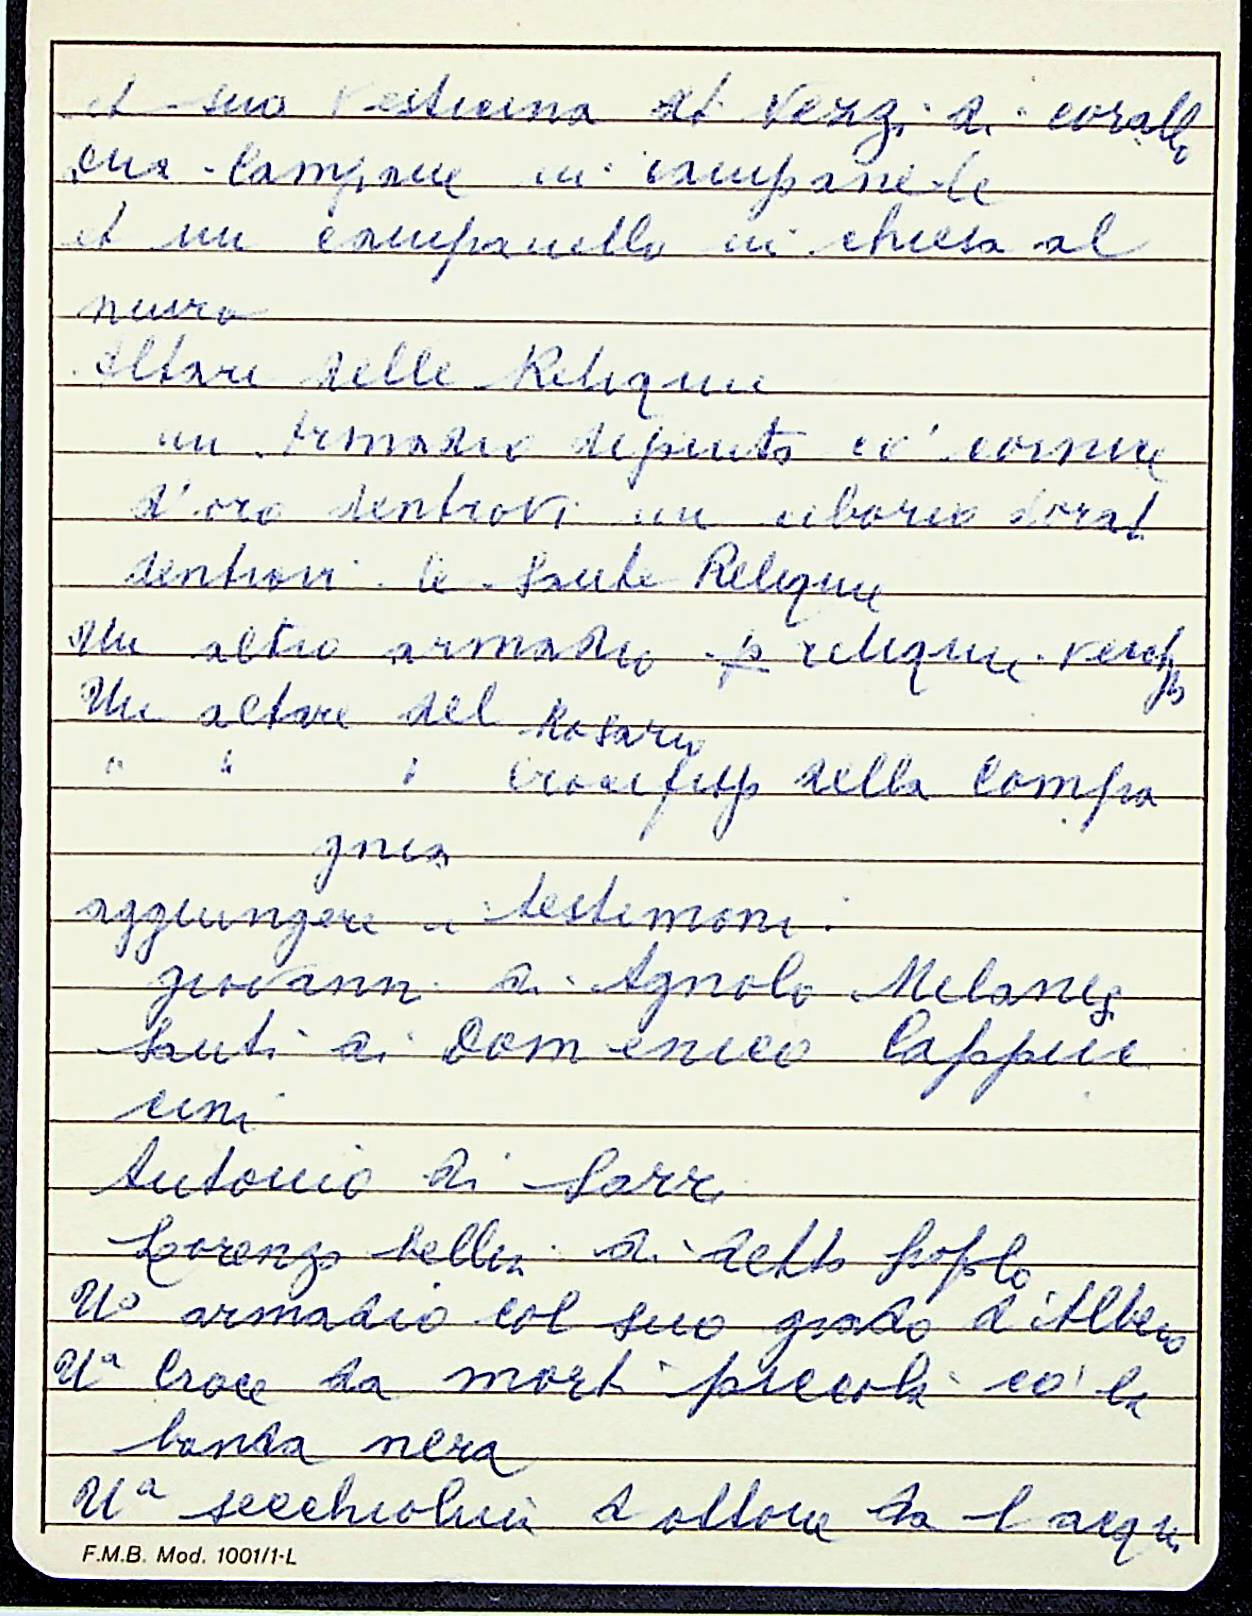 et sua vesticina et vezzi di corallo
due campane in campanile
et un campanello in chiesa al
muro
Altare delle Reliquie
un Armadio depinto co' cornice
d'oro dentrovi un ciborio dorat.
dentrovi le Sante Reliquie
Un altro armadio p reliquie vecch
Un altare del Rosario
" " " Crocifisso della Compa
gnia
aggiungere i testimoni:
Giovanni di Agnolo Milanes
Santi di Domenico Cappuc
cini
Antonio di
Lorenzo Bellini di detto Popolo
Uo armadio col suo grado d'Albero
Ua Croce da morti piccola co' la
banda nera
Ua secchiolina d ottone da l acqu
F.M.B. Mod. 1001/1-L